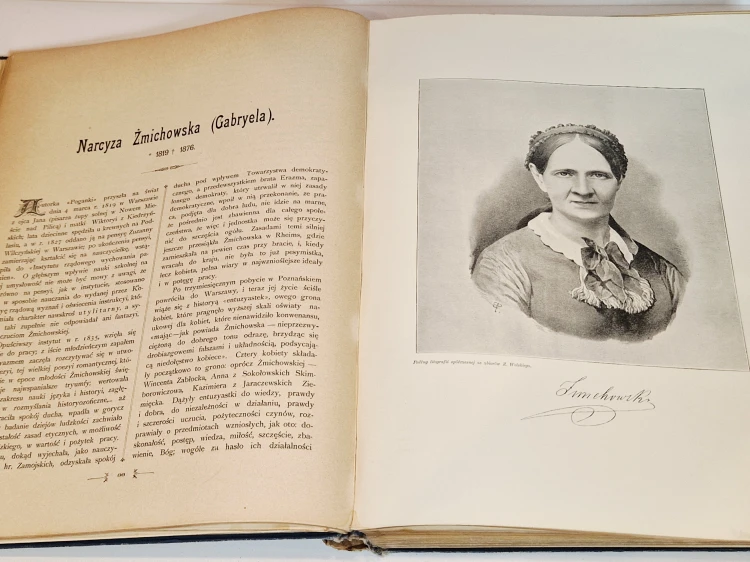 Narcyza Żmichowska (Gabryela).
* 1819 † 1876.
Autorka «Poganki» przyszła na świat
dnia 4 marca r. 1819 w Warszawie
z ojca Jana (pisarza żupy solnej w Nowem Mie-
ście nad Pilicą) i matki Wiktoryi z Kiedrzyń-
skich; lata dziecinne spędziła u krewnych na Pod-
lasiu, a w r. 1827 oddano ją na pensyę Zuzanny
Wilczyńskiej w Warszawie; po ukończeniu pensyi,
zamierzając kształcić się na nauczycielkę, wstą-
piła do «Instytutu rządowego wychowania pa-
nien». O głębszym wpływie nauki szkolnej na
jej umysłowość nie może być mowy z uwagi, że
zarówno na pensyi, jak w instytucie, stosowano
w sposobie nauczania do wydanej przez Ko-
rządową wyznań i oświecenia instrukcyi, któ-
miała charakter nawskroś utylitarny, a sy-
taki zupełnie nie odpowiadał ani fantazyi,
uczuciom Żmichowskiej.
Opuściwszy instytut w r. 1835, wzięła się
do pracy: z iście młodzieńczym zapałem
zaczęła rozczytywać się w utwo-
tej wielkiej poezyi romantycznej, któ-
w epoce młodości Żmichowskiej świę-
najwspanialsze tryumfy; wertowała
zakresu nauki języka i historyi, zagłę-
w rozmyślania historyozoficzne,.. aż
straciła spokój ducha, wpadła w gorycz
badanie dziejów ludzkości zachwiało
stałość zasad etycznych, w możliwość
ludzkiego, w wartość i pożytek pracy.
dokąd wyjechała, jako nauczy-
hr. Zamojskich, odzyskała spokój
ducha pod wpływem Towarzystwa demokraty-
cznego, a przedewszystkiem brata Erazma, zapa-
lonego demokraty, który utrwalił w niej zasady
demokratyczne, wpoił w nią przekonanie, że pra-
ca, podjęta dla dobra ludu, nie idzie na marne,
że pośrednio jest zbawienna dla całego społe-
czeństwa, że więc i jednostka może się przyczy-
nić do szczęścia ogółu. Zasadami temi silniej
jeszcze przesiąkła Żmichowska w Rheims, gdzie
zamieszkała na pewien czas przy bracie, i, kiedy
wracała do kraju, nie była to już pesymistka,
lecz kobieta, pełna wiary w najwznioślejsze ideały
i w potęgę pracy.
Po trzymiesięcznym pobycie w Poznańskiem
powróciła do Warszawy, i teraz jej życie ściśle
wiąże się z historyą «entuzyastek», owego grona
kobiet, które pragnęło wyższej skali oświaty na-
ukowej dla kobiet, które nienawidziło konwenansu,
«mając—jak powiada Żmichowska — nieprzezwy-
ciężoną do dobrego tonu odrazę, brzydząc się
drobiazgowemi fałszami i układnością, podsycają-
cą niedołęstwo kobiece». Cztery kobiety składa-
ły początkowo to grono: oprócz Żmichowskiej —
Wincenta Zabłocka, Anna z Sokołowskich Skim-
borowiczowa, Kazimiera z Jaraczewskich Zie-
mięcka. Dążyły entuzyastki do wiedzy, prawdy
i dobra, do niezależności w działaniu, prawdy
i szczerości uczucia, pożyteczności czynów, roz-
prawiały o przedmiotach wzniosłych, jak oto: do-
skonałość, postęp, wiedza, miłość, szczęście, zba-
wienie, Bóg; wogóle za hasło ich działalności
Żmichowsk